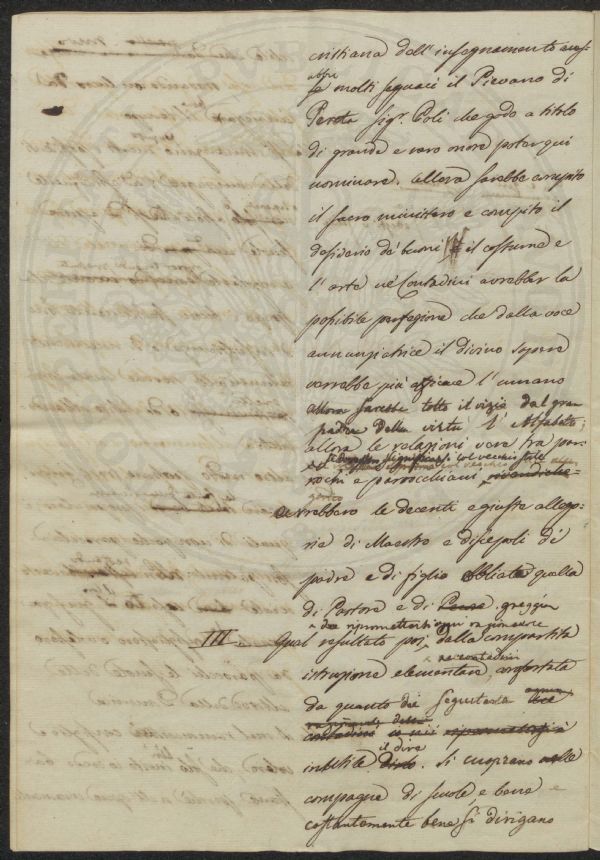 cristiana dell'insegnamento avesse
molti seguaci il Pievano di
Pereta Sigr. Poli che godo a titolo
di grande e vero onore poter qui
nominare. Allora sarebbe compito
il sacro ministero e compito il
desiderio de' buoni il costume e
l'arte ne' Contadini avrebber la
possibile perfezione che dalla voce
annunziatrice il divino sapere
verrebbe più efficace l'umano
allora sarebbe tolto il vizio dal gran
padre della virtù l'Alfabeto;
allora le relazioni vere tra par-
rochi e parrocchiani
avrebbero le decenti e giuste allego-
rie di Maestro e discepoli di
padre e di figlio obliate quella
di Pastore e di greggia
da ripromettersi
III. Qual resultato poi dalla compartita
ne' contadini
istruzione elementare confortata
da quanto dei
il dire
inutile Si cuoprano
campagne di scuole, e bene e
costantemente bene si dirigano